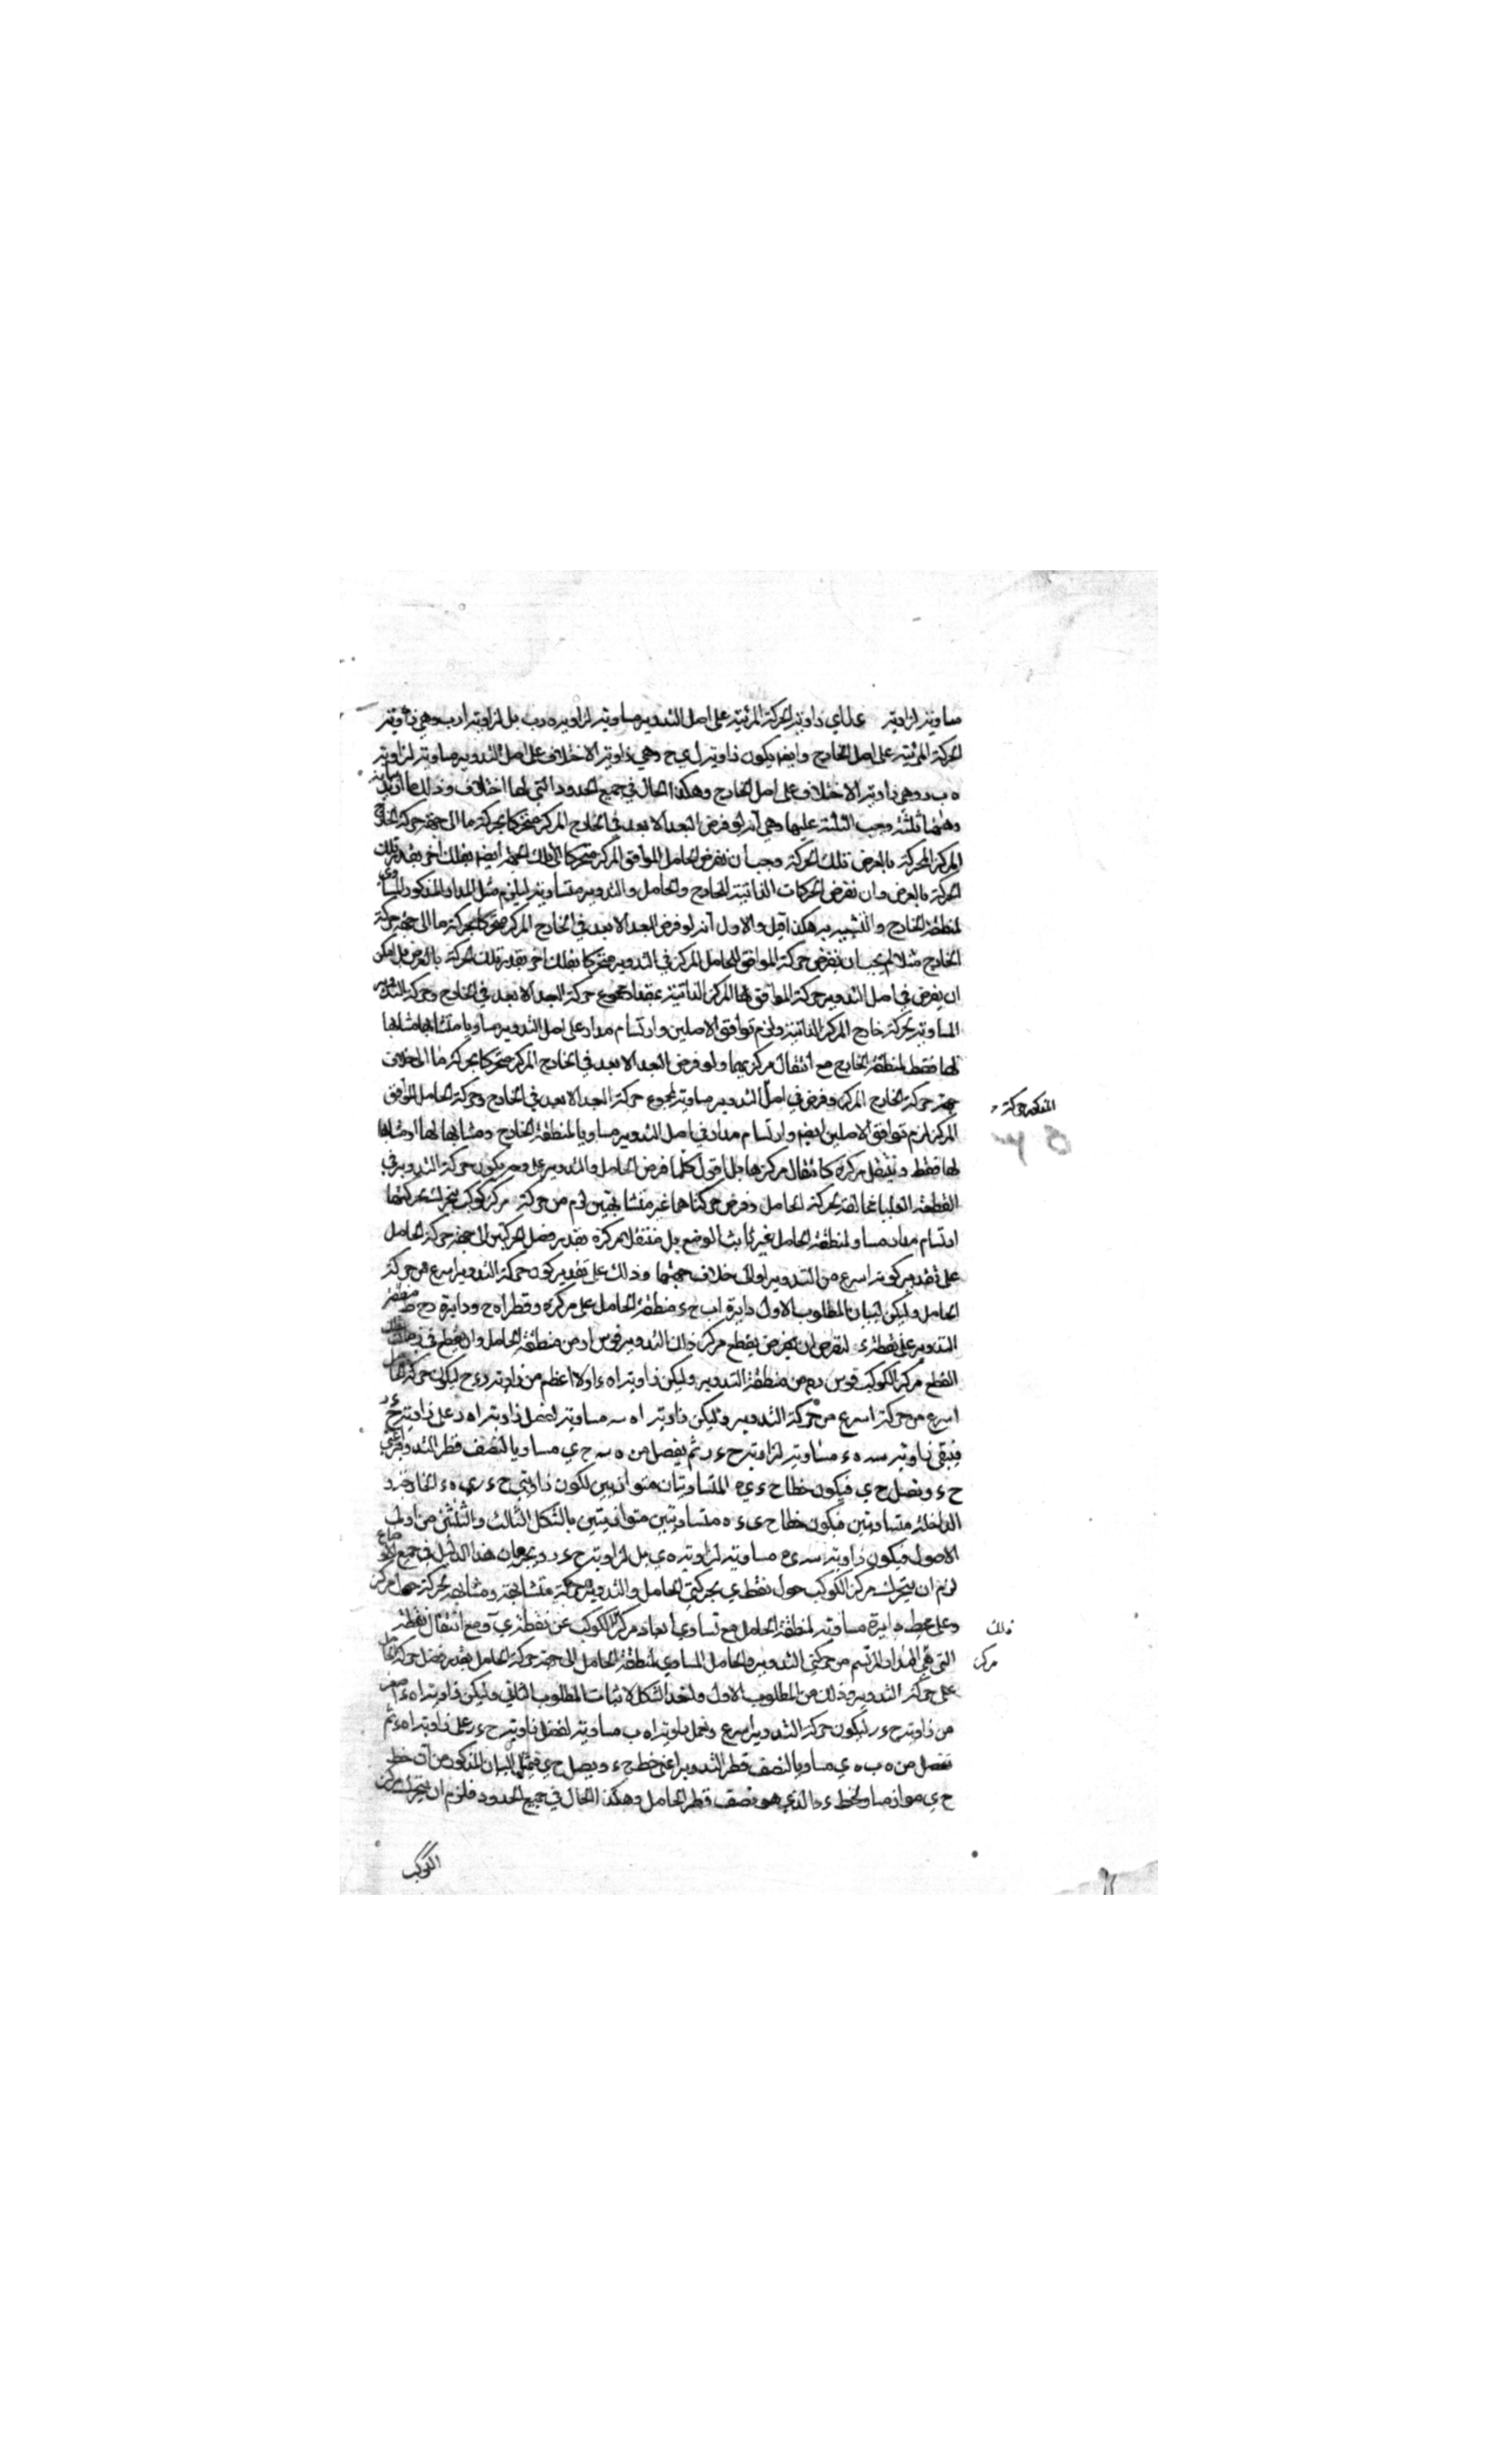 مساوية لزاوية علاي زاوية الحركة المرئية على اصل التدوير مساوية لزاويه ه د ب بل لزاوية ا د ب وهي زاوية
الحركة المرئية على اصل الخارج وايضا يكون زاوية ل ي ح وهي زاوية الاختلاف على اصل التدوير مساوية لزاوية
ه ب د وهي زاوية الاختلاف على اصل الخارج وهكذا الحال في جميع الحدود التي لها اختلاف وذلك ما اردناه
وههنا ثلثة وجب التنبيه عليها وهي انه لو فرض البعد الابعد في الخارج المركز متحركا بحركة ما الى جهة حركة الخارج
المركز المحركة بالعرض تلك الحركة وجب ان نفرض الحامل الموافق المركز متحركا الى تلك الجهة ايضا بفلك اخر بقدر تلك
الحركة بالعرض وان نفرض الحركات الذاتية للخارج والحامل والتدوير متساوية ليلزم مثل المدار المذكور المساوي
لمنطقة الخارج والشبيه به هكذا قيل والاول انه لو فرض البعد الابعد في الخارج المركز متحركا بحركة ما الى جهة حركة
الخارج مثلا لم يجب ان نفرض حركة الموافق للحامل المركز في التدوير متحركا بفلك اخر بقدر تلك الحركة بالعرض بل يمكن
ان يفرض في اصل التدوير حركة الموافق لها المركز الذاتية بمقدار مجموع حركة البعد الابعد في الخارج وحركة التدوير
المساوية لحركة خارج المركز الذاتية ولزم توافق الاصلين وارتسام مدار على اصل التدوير مساويا متشابها مشابها
لها فقط لمنطقة الخارج مع انتقال مركزيهما ولو فرض البعد الابعد في الخارج المركز متحركا بحركة ما الى خلاف
جهة حركة الخارج المركز وفرض في اصل التدوير مساوية لمجموع حركة البعد الابعد في الخارج وحركة الحامل الموافق
المذكور حركة
المركز لزم توافق الاصلين ايضا وارتسام مدار في اصل التدوير مساويا لمنطقة الخارج ومشابها لها او مشابها
لها فقط وينتقل مركزه كانتقال مركزها بل اقول كلما فرض الحامل والتدوير على وجه يكون حركة التدوير في
القطعة العليا مخالفة لحركة الحامل وفرض حركتاهما غير متشابهتين لزم من حركة مركز كوكب يتحرك بحركتهما
ارتسام مدار مساو لمنطقة الحامل غير ثابت الوضع بل منتقل مركزه بقدر فضل الحركتين الى جهة حركة الحامل
على تقدير كونه اسرع من التدوير او الى خلاف جهتها وذلك على تقدير كون حركة التدوير اسرع من حركة
الحامل وليكن لبيان المطلوب الاول دايرة ا ب ح ء منطقة الحامل على مركز ه وقطر ا ه ح ودايرة د ح ط منطقة
التدوير على نقطة ء لنفرض ان يفرض يقطع مركز ذلك التدوير قوس ا د من منطقة الحامل وان يقطع في زمان ذلك
القطع مركز الكوكب قوس د ح من منطقة التدوير وليكن زاوية ا ه ء اولا اعظم من زاوية ر ء ح ليكون حركة الحامل
اسرع من حركة اسرع من حركة التدوير وليكن زاوية ا ه س مساوية لفضل زاوية ا ه د على زاوية ح ء ر
فيبقى زاوية س ه ء مساوية لزاوية ح ء ر ثم يفصل من ه س ح ي مساويا لنصف قطر التدوير اعني
ح ء ونصل ح ي فيكون خطا ح ء ي ه المتساويتان متوازيين لكون زاويتي ح ء ر ي ه ء الخارجة و
الداخلة متساويتين فيكون خطا ح ي ء ه متساويتين متوازيتين بالشكل الثالث والثلثين من اولى
الاصول فيكون زاوية س ي ح مساوية لزاوية ه ي بل لزاوية ح ء ر وبجريان هذا الدليل في جميع الاوضاع
لزم ان يتحرك مركز الكوكب حول نقطة ي بحركتي الحامل والتدوير حركة متشابهة ومشابهة لحركة حول مركز
وعلى محيط دايرة مساوية لمنطقة الحامل مع تساوي ابعاد مركز الكوكب عن نقطة ي ومع انتقال نقطة
فلك
التي هي المدار المرتسم من حركتي التدوير والحامل المساوي لمنطقة الحامل الى جهة حركة الحامل بقدر فضل حركة الحامل
مركز
على حركة التدوير وذلك من المطلوب الاول ولنعد الشكل لاثبات المطلوب الثاني وليكن زاوية ا ه ء اصغر
من زاوية ح ء ر ليكون حركة التدوير اسرع ونعمل زاوية ا ه ب مساوية لفضل زاوية ح ء ر على زاوية ا ه ء ثم
نفصل من ه ب ه ي مساويا لنصف قطر التدوير اعني خط ح ء ويصل ح ي فبمثل البيان المذكور من ان خط
ح ي مواز مساو لخط ء ه الذي هو نصف قطر الحامل وهكذا الحال في جميع الحدود فلزم ان يتحرك مركز
الكوكب